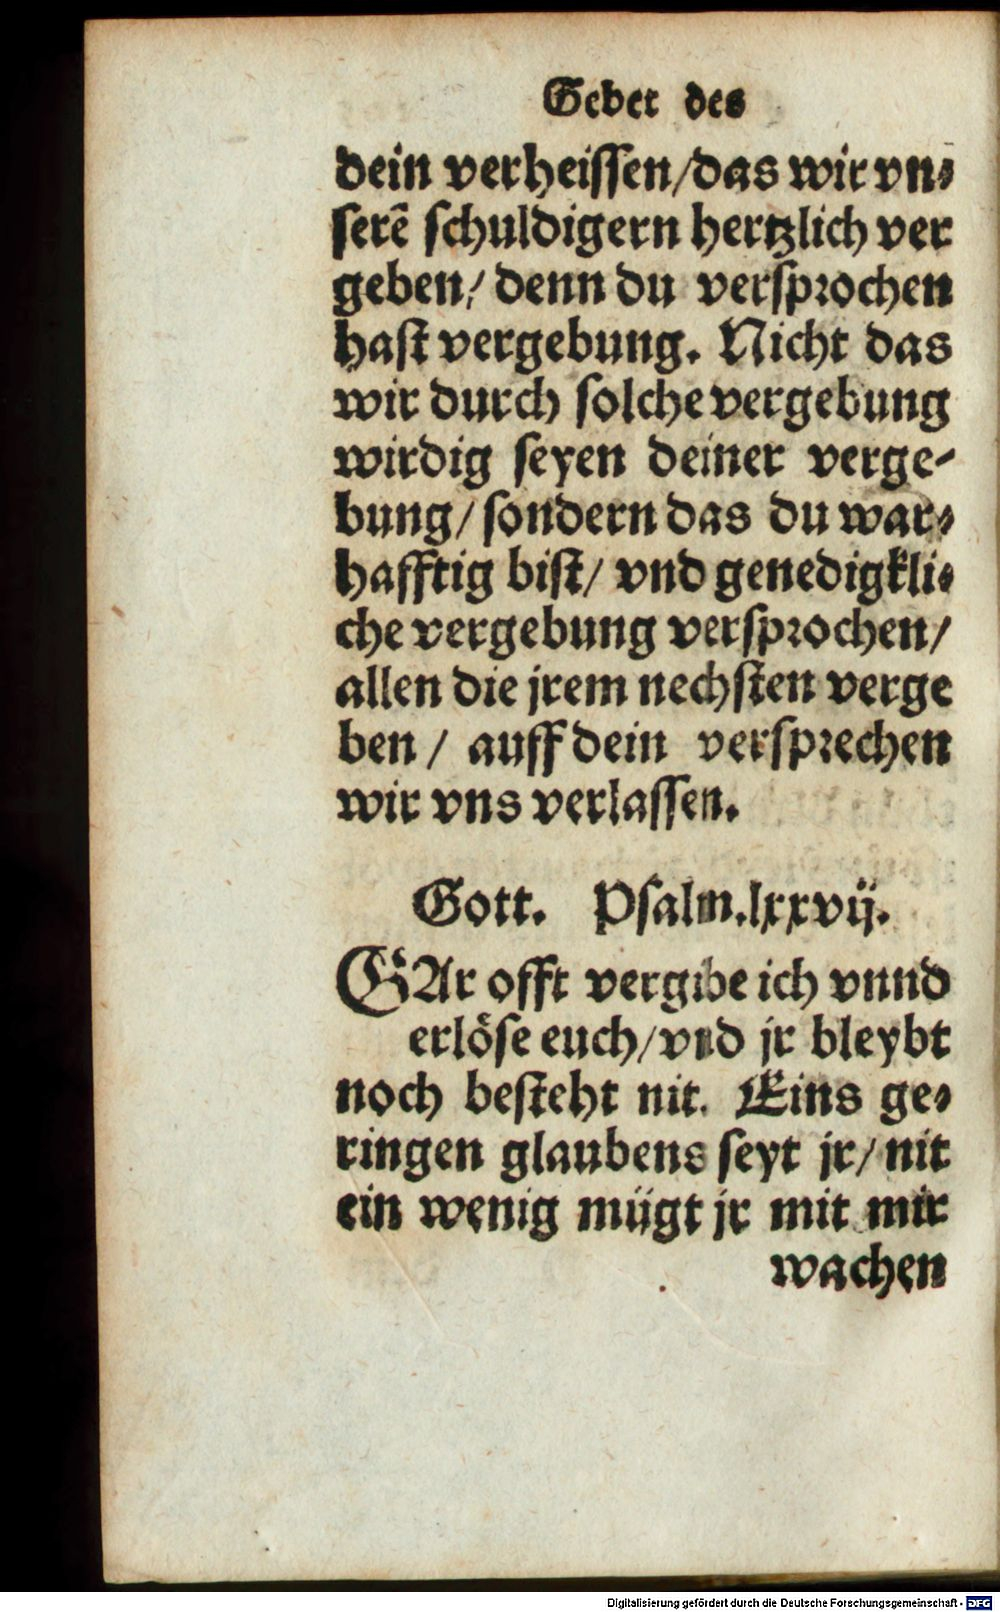 Gebet des
dein verheissen/das wir vn⸗
serē schuldigern hertzlich ver
geben/ denn du versprochen
hast vergebung. Nicht das
wir durch solche vergebung
wirdig seyen deiner verge⸗
bung/ sondern das du war⸗
hafftig bist/ vnd genedigkli⸗
che vergebung versprochen/
allen die jrem nechsten verge
ben / auff dein versprechen
wir vns verlassen.
Gott. Psalm.lxxvij.
GAr offt vergibe ich vnnd
erlöse euch/vnd jr bleybt
noch besteht nit. Eins ge⸗
ringen glaubens seyt jr/ nit
ein wenig mügt jr mit mir
wachen
Digitalisierung gefördert durch die Deutsche Forschungsgemeinschaft - DFG